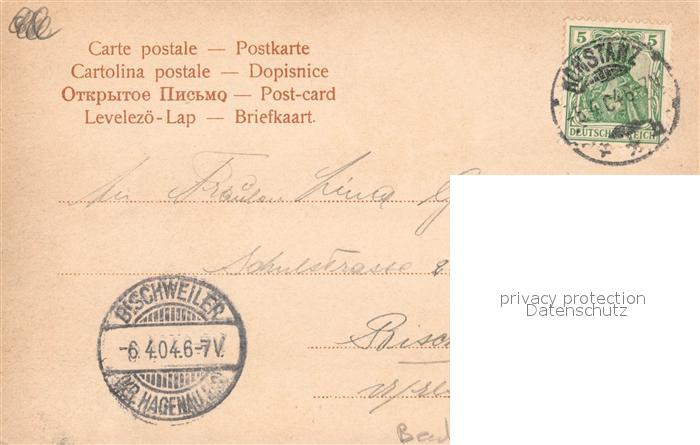 Carte postale — Postkarte
Cartolina postale — Dopisnice
Открытое Письмо — Post-card
Levelezö-Lap — Briefkaart.
5 5
DEUTSCHES REICH
KONSTANZ
Fräulein Lina
Schulstrasse
privacy protection
Datenschutz
BISCHWEILER
-6.4.04.6-7V.
Bisc